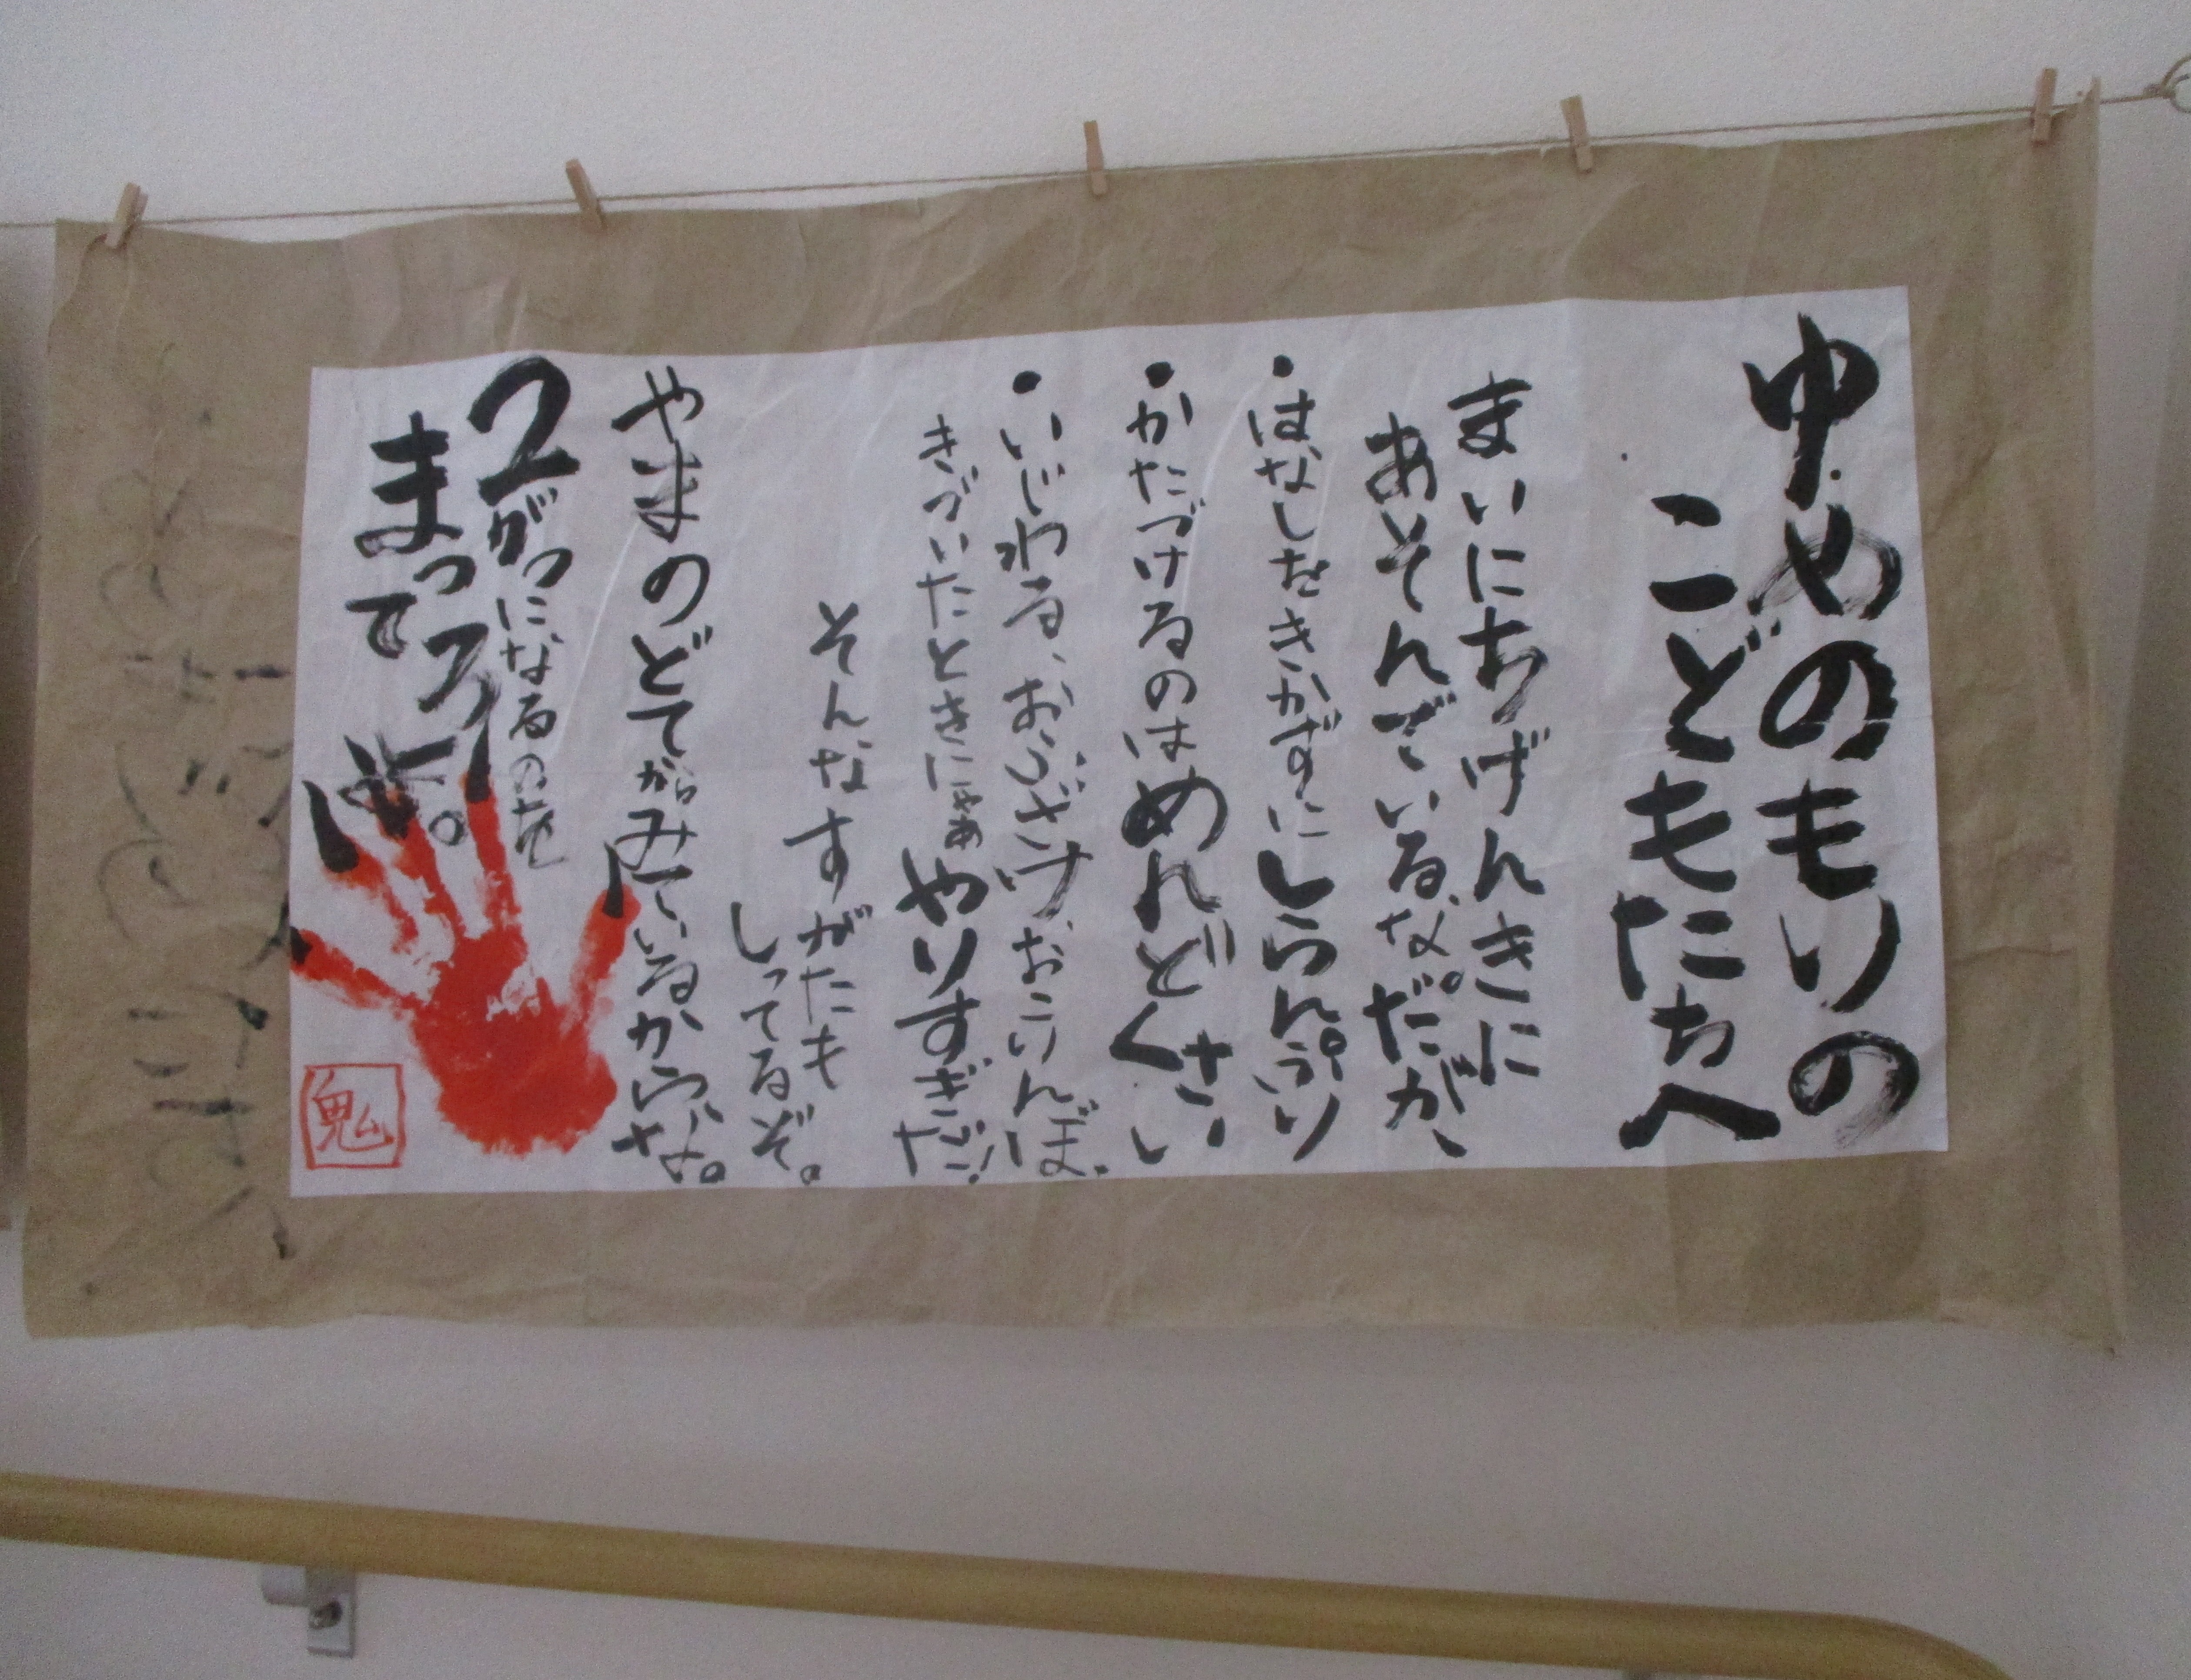 ゆめのもりの
こどもたちへ
まいにちげんきに
あそんでいるな。だが、
・はなしをきかずにしらんぷり
・かたづけるのはめんどくさい
・いじわる、おふざけ、おこりんぼ
きづいたときにゃぁやりすぎだ!
そんなすがたも
しってるぞ。
やまのどてからみているからな。
2がつになるのを
まってろよ。
鬼